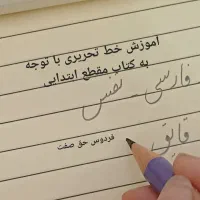 آموزش خط تحریری با توجه
به کتاب مقطع ابتدایی
فارسی نفس
قایق
فردوس حق صفت